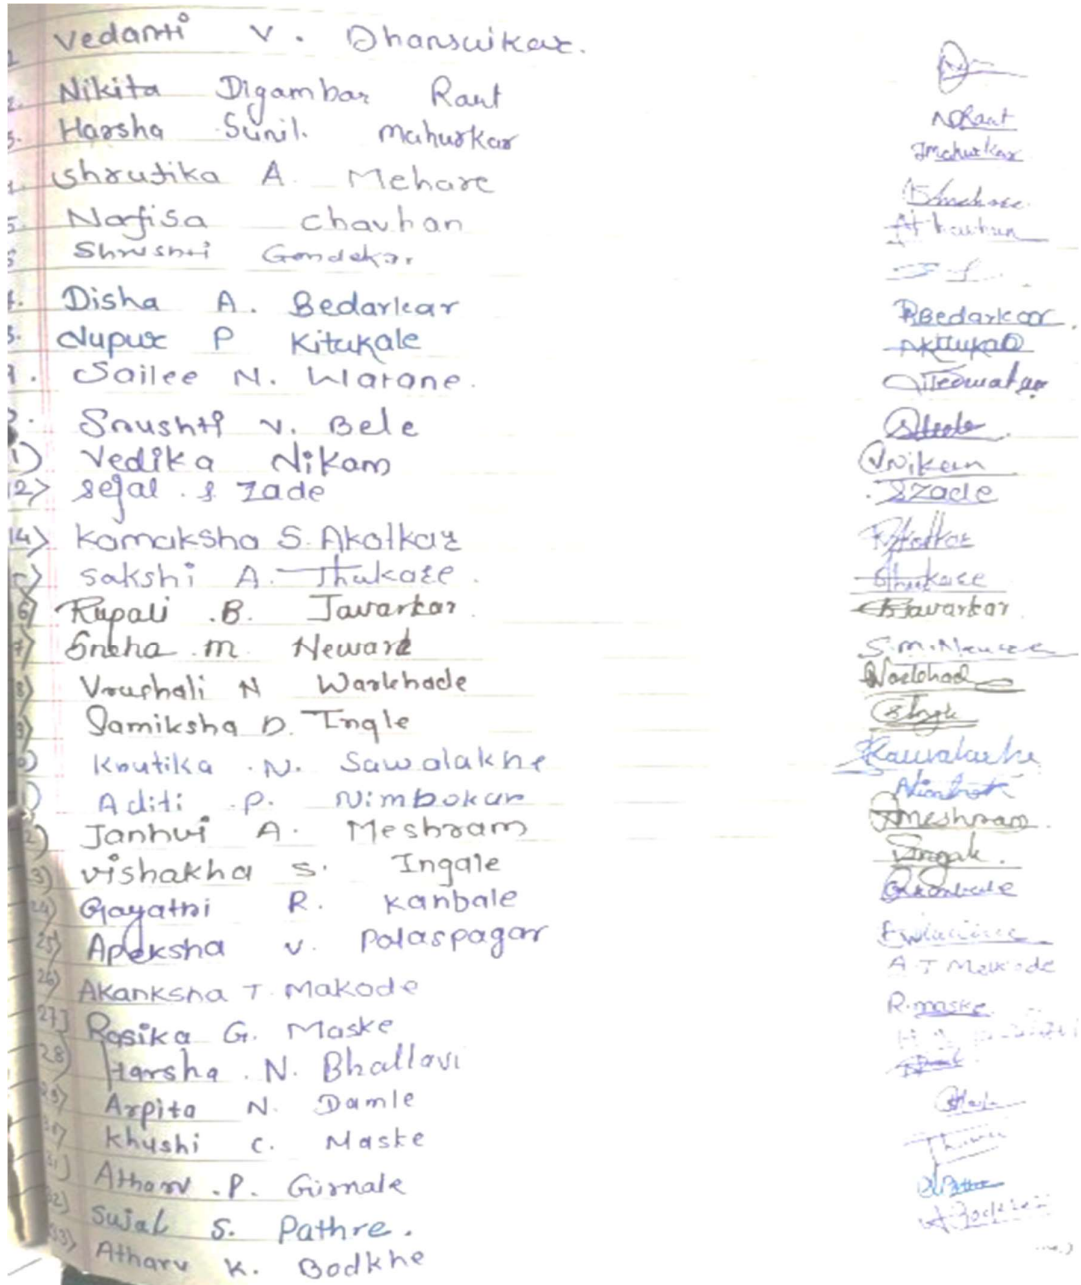 Vedanti V. Dhanswikar.
2. Nikita Digambar Raut NDRaut
3. Harsha Sunil. Mahurkar
Shrutika A. Mehare
5. Nafisa Chavhan
Shrushti Gondekar
7. Disha A. Bedarkar Bedarkar
8. Nupur P Kitukale
9. Sailee N. Warane.
Srushti V. Bele
1) Vedika Nikam VNikam
12) Sejal. S Zade SZade
14) Kamaksha S. Akolkar
Sakshi A. Thakare. Thakare
6) Rupali .B. Javarkar Javarkar
7) Sneha .M. Neware S.M.Neware
8) Vrushali N Warkhade
9) Samiksha D. Ingle
Krutika .N. Sawalakhe
Aditi .P. Nimbokar
2) Janhvi A. Meshram Meshram
3) Vishakha S. Ingale
24) Gayatri R. Kanbale
25) Apeksha V. Palaspagar
26) Akanksha T. Makode A.T Makode
27) Rasika G. Maske R.maske
28) Harsha .N. Bhallavi
29) Arpita N. Damle
30) Khushi C. Maske
31) Atharv .P. Girnale
32) Sujal S. Pathre.
33) Atharv K. Bodkhe A Bodkhe